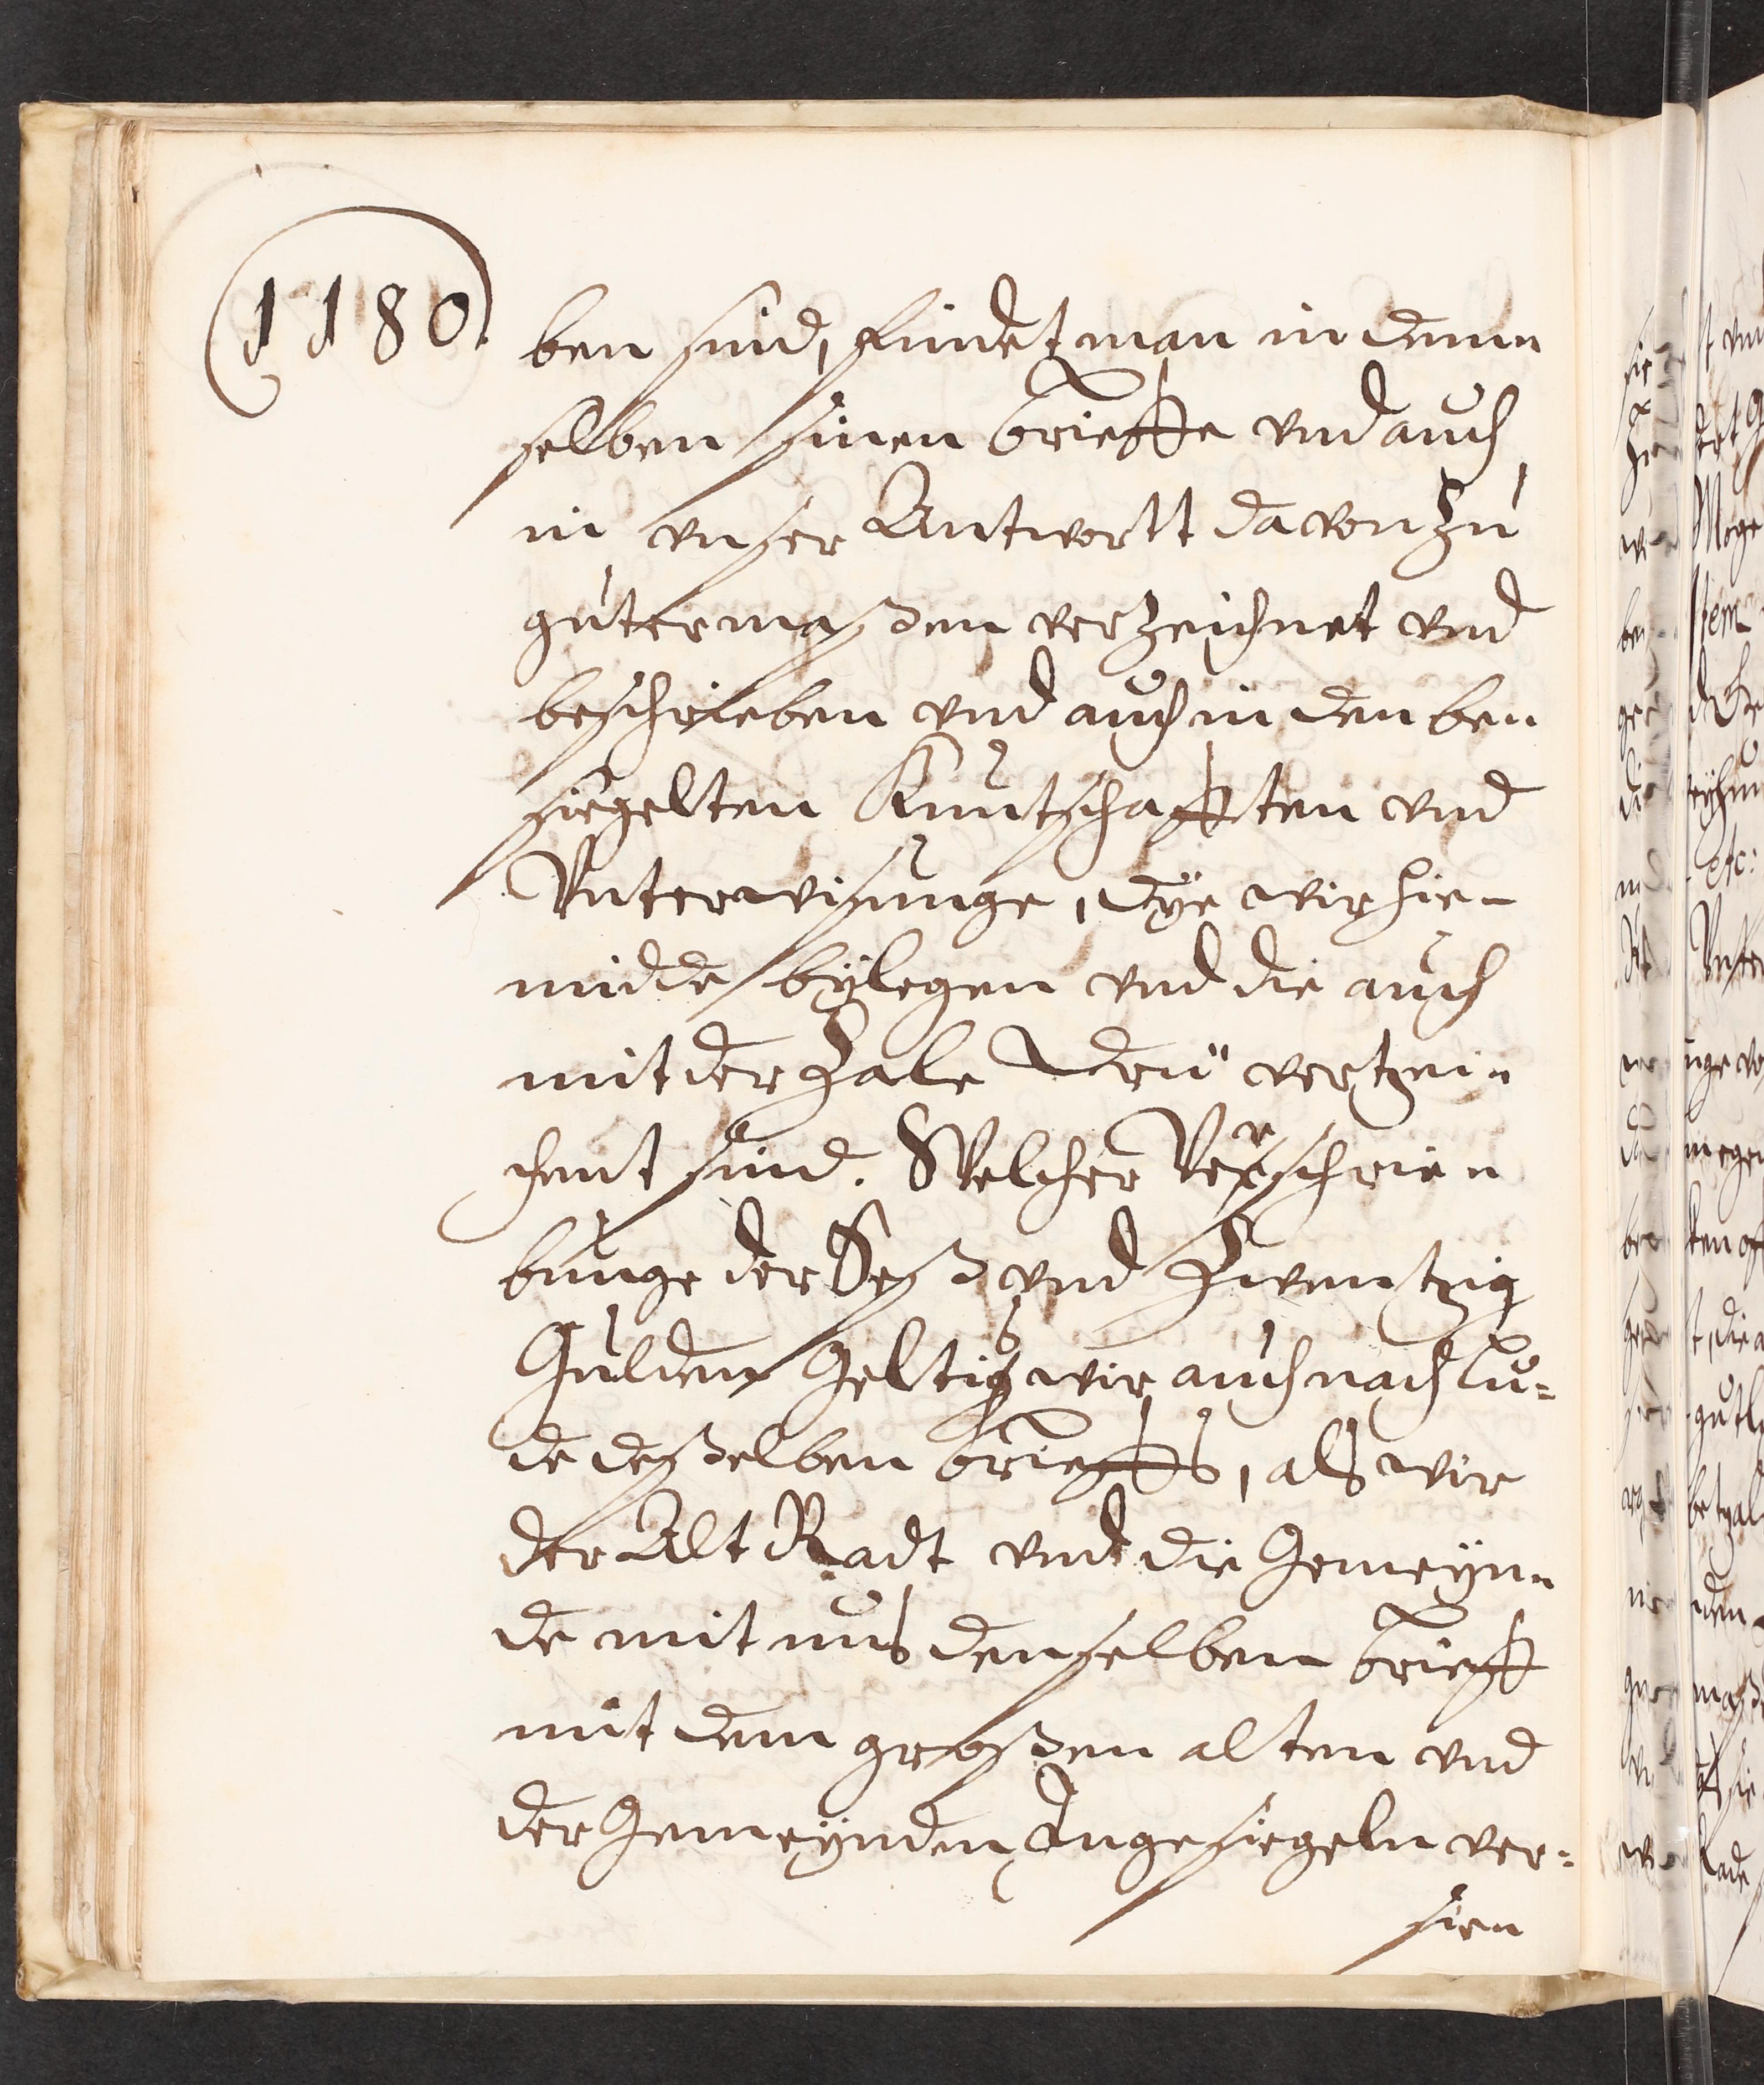 1180.
ben sind, findet man in dem-
selben sinen brieffe vnd auch
in vnser Antwortt da von zu
guter maßen verzeichnet vnd
beschrieben vnd auch in den ben
siegelten Kuntschafften vnd
Vnterwisunge, dÿe wir hie-
midde bÿlegen vnd die auch
mit der Zale drü vertzei-
chent sind. Welcher Verschrie-
bunge der Seß vnd Zwentzig
Gulden Geltis wir auch nach lu-
de deßelben brieffs, als wir
der Alt Radt vnd die Gemeÿn-
de mit uns denselben brieff
mit dem großen alten vnd
der Gemeÿnden Ingesiegeln ver-
sien